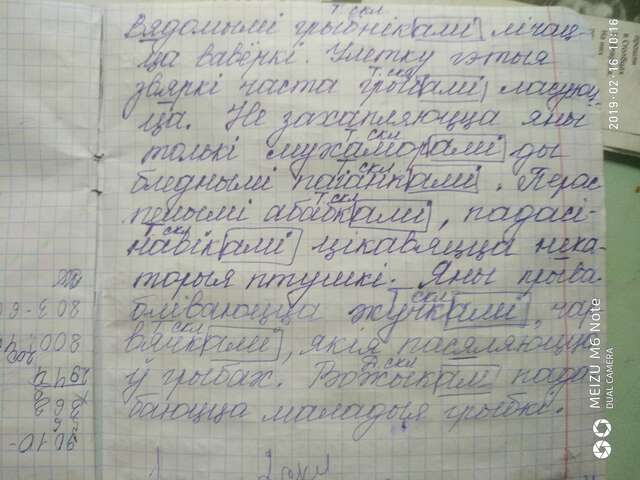 Вядомымі грыбнікамі лічац-
ца вавёркі. Улетку гэтыя
звяркі часта грыбамі ласуюц-
ца. Не захапляюцца яны
толькі мухаморамі ды
бледнымі паганкамі. Перас-
пелымі абабкамі, падасі-
навікамі цікавяцца нека-
торыя птушкі. Яны прыва-
бліваюцца жучкамі, чар-
вячкамі, якія пасяляюцца
ў грыбах. Вожыкам пада-
баюцца маладыя грыбкі.
2019-02-16 10:16
MEIZU M6 Note
DUAL CAMERA